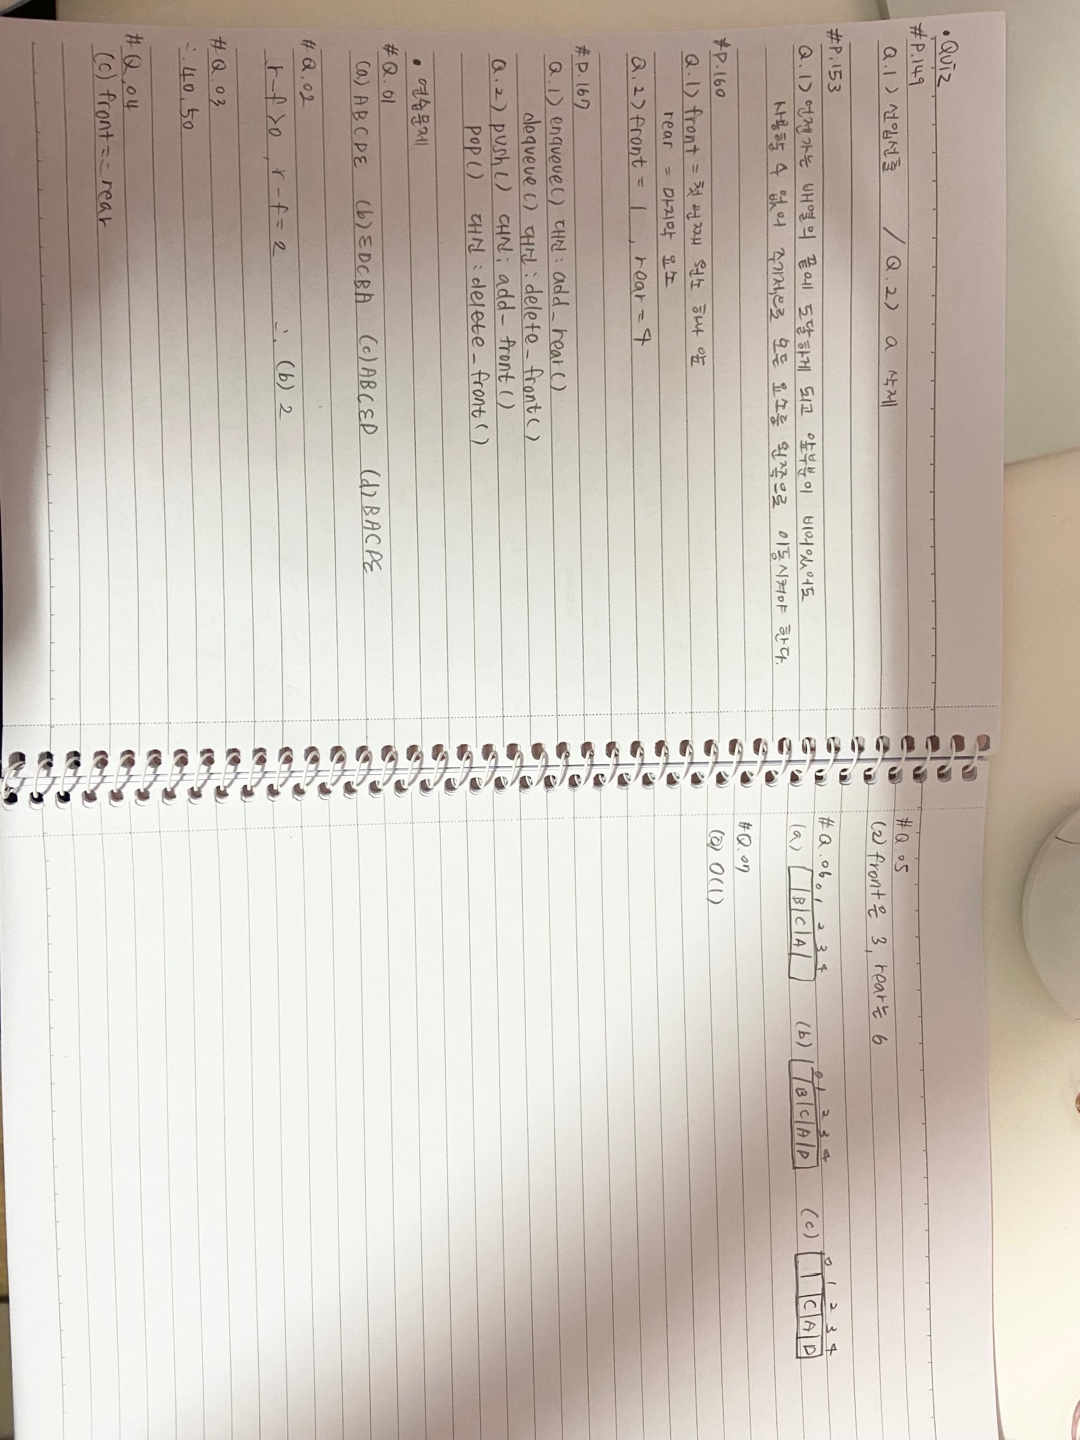 • Quiz
#P.149
Q.1) 선입선출 / Q.2) a 삭제
#P.153
Q.1) 언젠가는 배열의 끝에 도달하게 되고 앞부분이 비어있어도
사용할 수 없어 주기적으로 모든 요소를 왼쪽으로 이동시켜야 한다.
#P.160
Q.1) front = 첫 번째 원소 하나 앞
rear = 마지막 요소
Q.2) front = 1, rear = 4
#P.167
Q.1) enqueue() 대신 : add_rear()
dequeue() 대신 : delete_front()
Q.2) push() 대신 : add_front()
pop() 대신 : delete_front()
• 연습문제
#Q.01
(a) ABCDE (b) EDCBA (c) ABCED (d) BACDE
#Q.02
r-f>0, r-f=2 ∴ (b) 2
#Q.03
∴ 40, 50
#Q.04
(c) front == rear
#Q.05
(2) front은 3, rear는 6
#Q.06
0 1 2 3 4
(a) | |B|C|A| |
0 1 2 3 4
(b) | |B|C|A|D|
0 1 2 3 4
(c) | | |C|A|D|
#Q.07
(a) O(1)